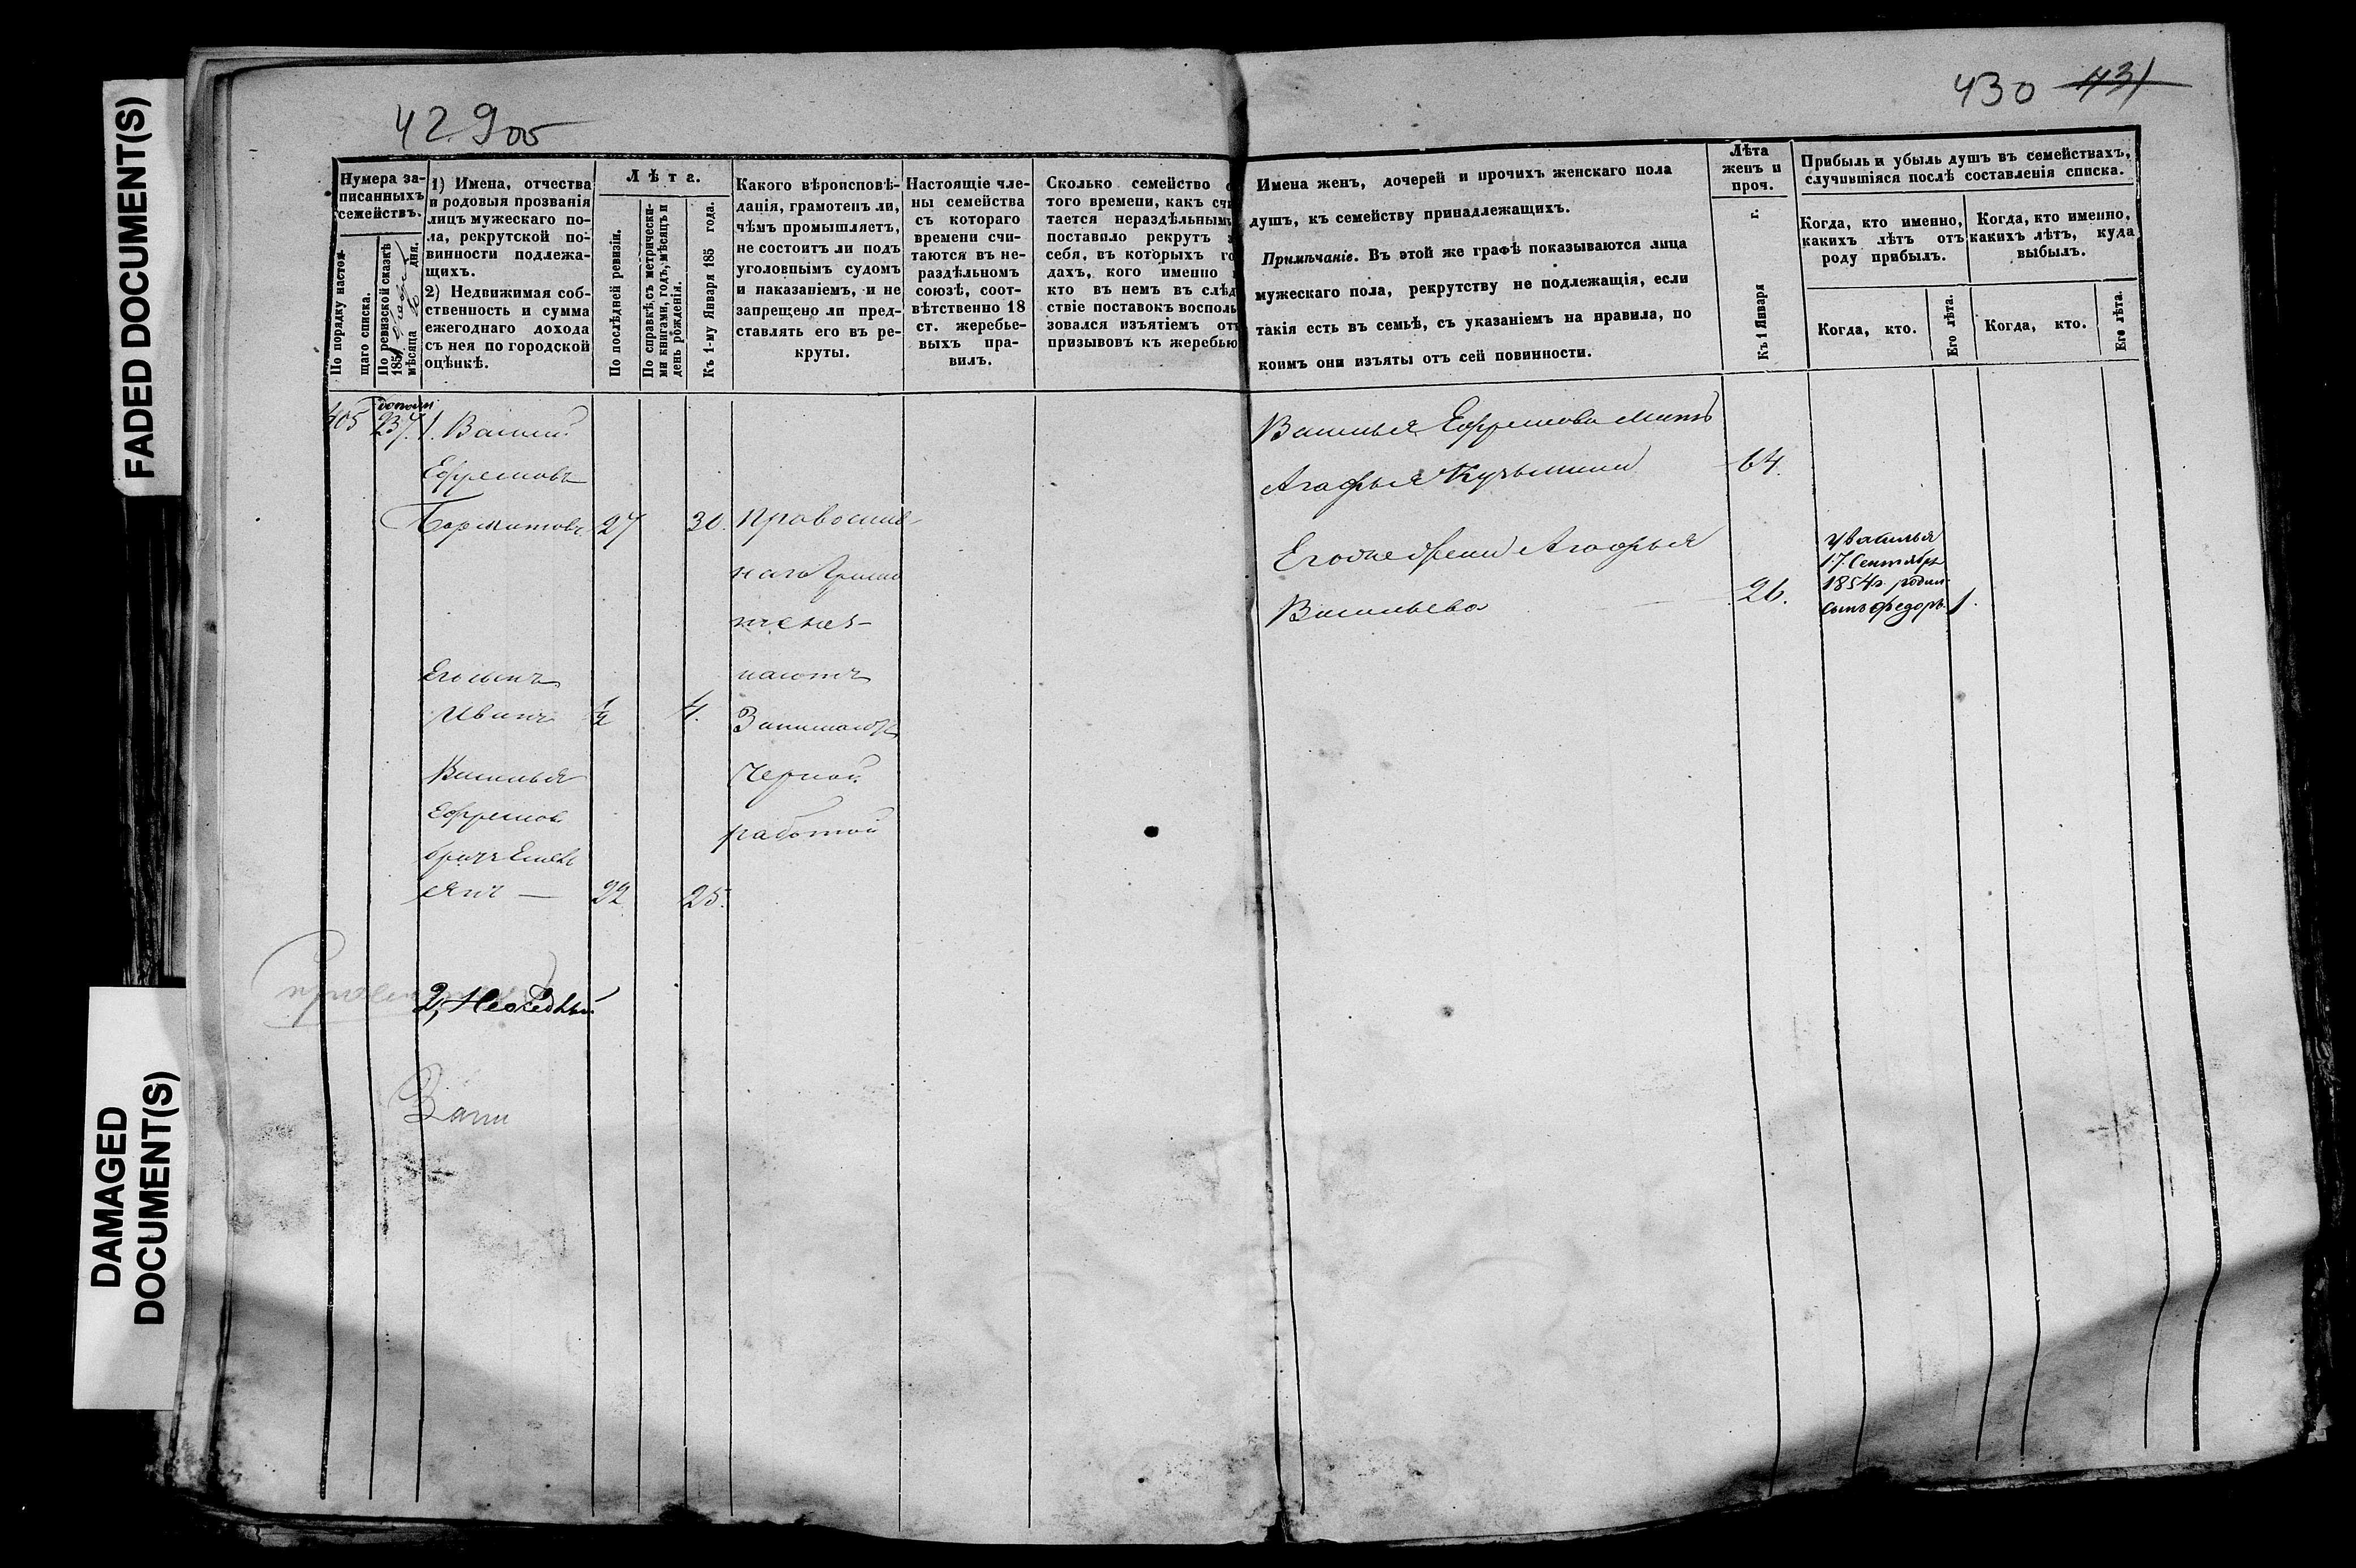 FADED DOCUMENT(S)
DAMAGED
DOCUMENT(S)
429об
430 431
Нумера за-
писанныхъ
семействъ.
По порядку настоя-
щаго списка.
По ревизской сказкѣ
185
мѣсяца дня.
1) Имена, отчества
и родовыя прозванія
лицъ мужескаго по-
ла, рекрутской по-
винности подлежа-
щихъ.
2) Недвижимая соб-
ственность и сумма
ежегоднаго дохода
съ нея по городской
оцѣнкѣ.
Лѣта.
По послѣдней ревизіи.
По справкѣ съ метрически-
ми книгами, годъ, мѣсяцъ и
день рожденія.
Къ 1-му Января 185 года.
Какого вѣроисповѣ-
данія, грамотенъ ли,
чѣмъ промышляетъ,
не состоитъ ли подъ
уголовнымъ судомъ
и наказаніемъ, и не
запрещено ли пред-
ставлять его въ ре-
круты.
Настоящіе чле-
ны семейства
съ котораго
времени счи-
таются въ не-
раздѣльномъ
союзѣ, соот-
вѣтственно 18
ст. жеребье-
выхъ пра-
вилъ.
Сколько семейство с
того времени, какъ счи
тается нераздѣльнымъ
поставило рекрутъ з
себя, въ которыхъ го
дахъ, кого именно и
кто въ немъ въ слѣд
ствіе поставокъ восполь
зовался изъятіемъ отъ
призывовъ къ жеребью
Имена женъ, дочерей и прочихъ женскаго пола
душъ, къ семейству принадлежащихъ.
Примѣчаніе. Въ этой же графѣ показываются лица
мужескаго пола, рекрутству не подлежащія, если
такія есть въ семьѣ, съ указаніемъ на правила, по
коимъ они изъяты отъ сей повинности.
Лѣта
женъ и
проч.
Къ 1 Января г.
Прибыль и убыль душъ въ семействахъ,
случившіяся послѣ составленія списка.
Когда, кто именно,
какихъ лѣтъ отъ
роду прибылъ.
Когда, кто именно,
какихъ лѣтъ, куда
выбылъ.
Когда, кто.
Его лѣта.
Когда, кто.
Его лѣта.
405 237. 1. Василий
Ефремовъ
27 30. Православ-
наго
Его сынъ
Иванъ ½ 4.
Занимаютъ
Василья
Ефремов.
братъ Емель
янъ — 22 25.
Черной
работой
2, Неоседлый
Василья Ефремова мать
Агафья Кузьмина 64.
Его же жена Агафья
Васильева 26.
У Василья
17. Сентября
1854 г. родил.
сынъ Федоръ. 1.